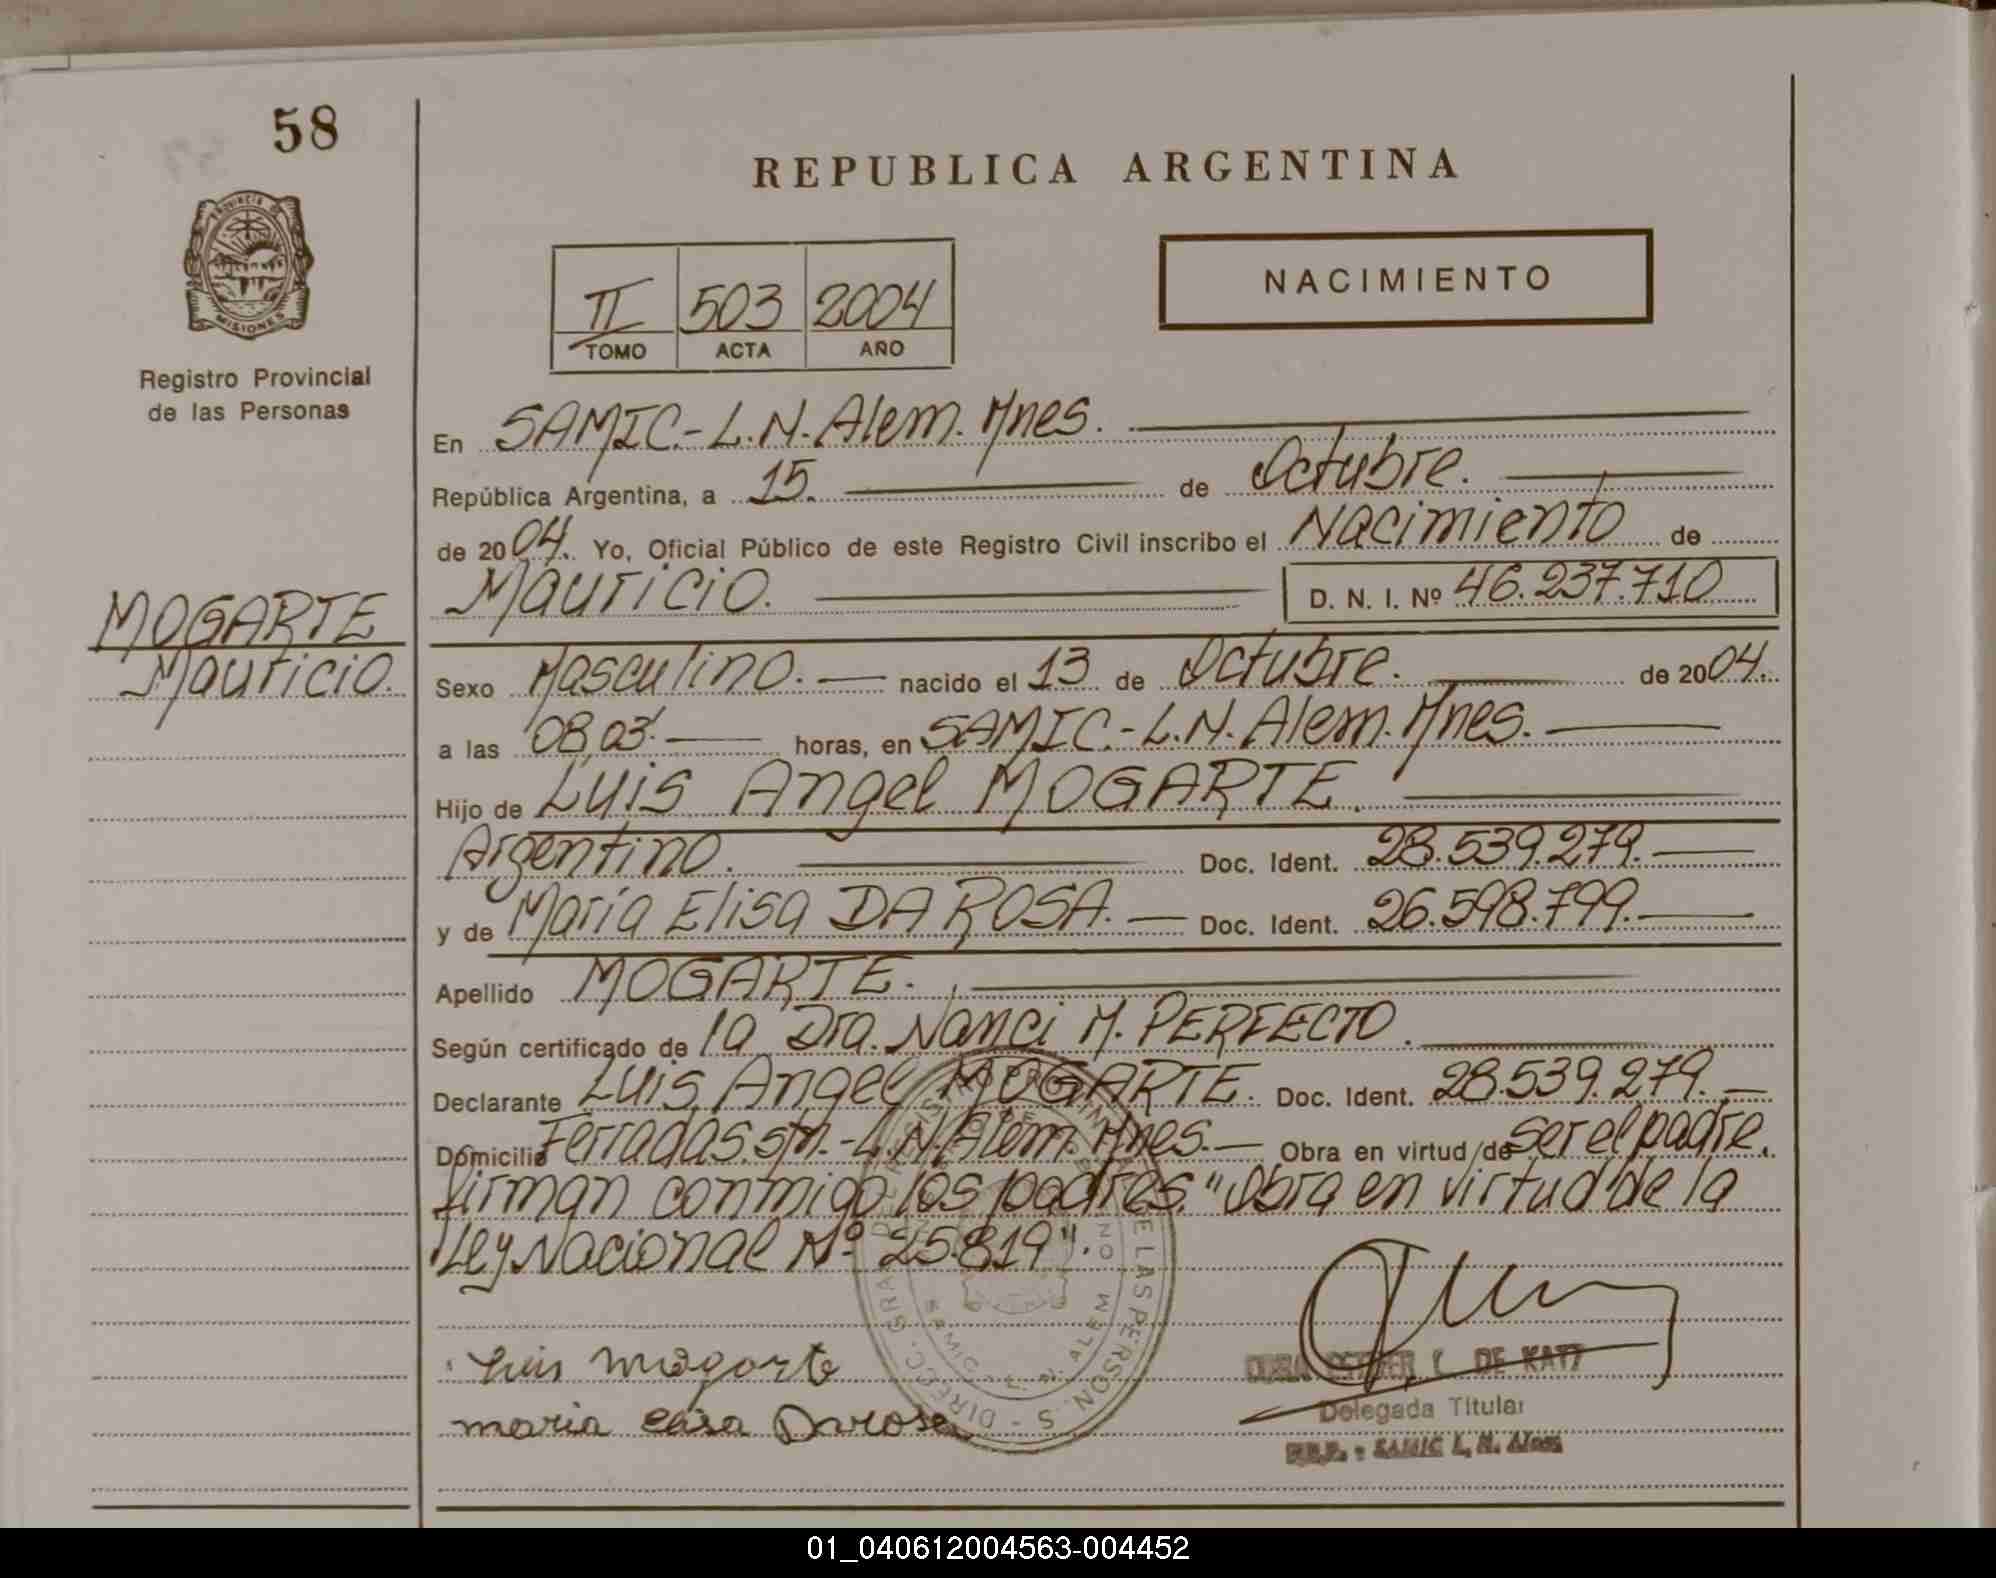 58
PROVINCIA DE
MISIONES
Registro Provincial
de las Personas
MOGARTE
Mauricio.
REPUBLICA ARGENTINA
NACIMIENTO
II 503 2004
TOMO ACTA AÑO
En SAMIC.-L.N.Alem.Mnes.
República Argentina, a 15. de Octubre.
de 2004. Yo, Oficial Público de este Registro Civil inscribo el Nacimiento de
Mauricio. D. N. I. Nº 46.237.710
Sexo Masculino. nacido el 13 de Octubre. de 2004.
a las 08,03'. horas, en SAMIC.-L.N.Alem.Mnes.
Hijo de Luis Angel MOGARTE.
Argentino. Doc. Ident. 28.539.279.
y de María Elisa DA ROSA. Doc. Ident. 26.598.799.
Apellido MOGARTE.
Según certificado de la Dra. Nanci M. PERFECTO.
Declarante Luis Angel MOGARTE. Doc. Ident. 28.539.279.
Domicilio Ferradas.s/n.-L.N.Alem.Mnes. Obra en virtud/de ser el padre.
firman conmigo los padres."Obra en virtud de la
Ley Nacional Nº 25.819".
Luis Mogarte
maria elisa Darosa
DE KATZ
Delegada Titular
R.P.P. - SAMIC L. N. Alem
DE LAS PERSONAS - DIRECC. GRAL
SAMIC - L. N. ALEM
01_040612004563-004452